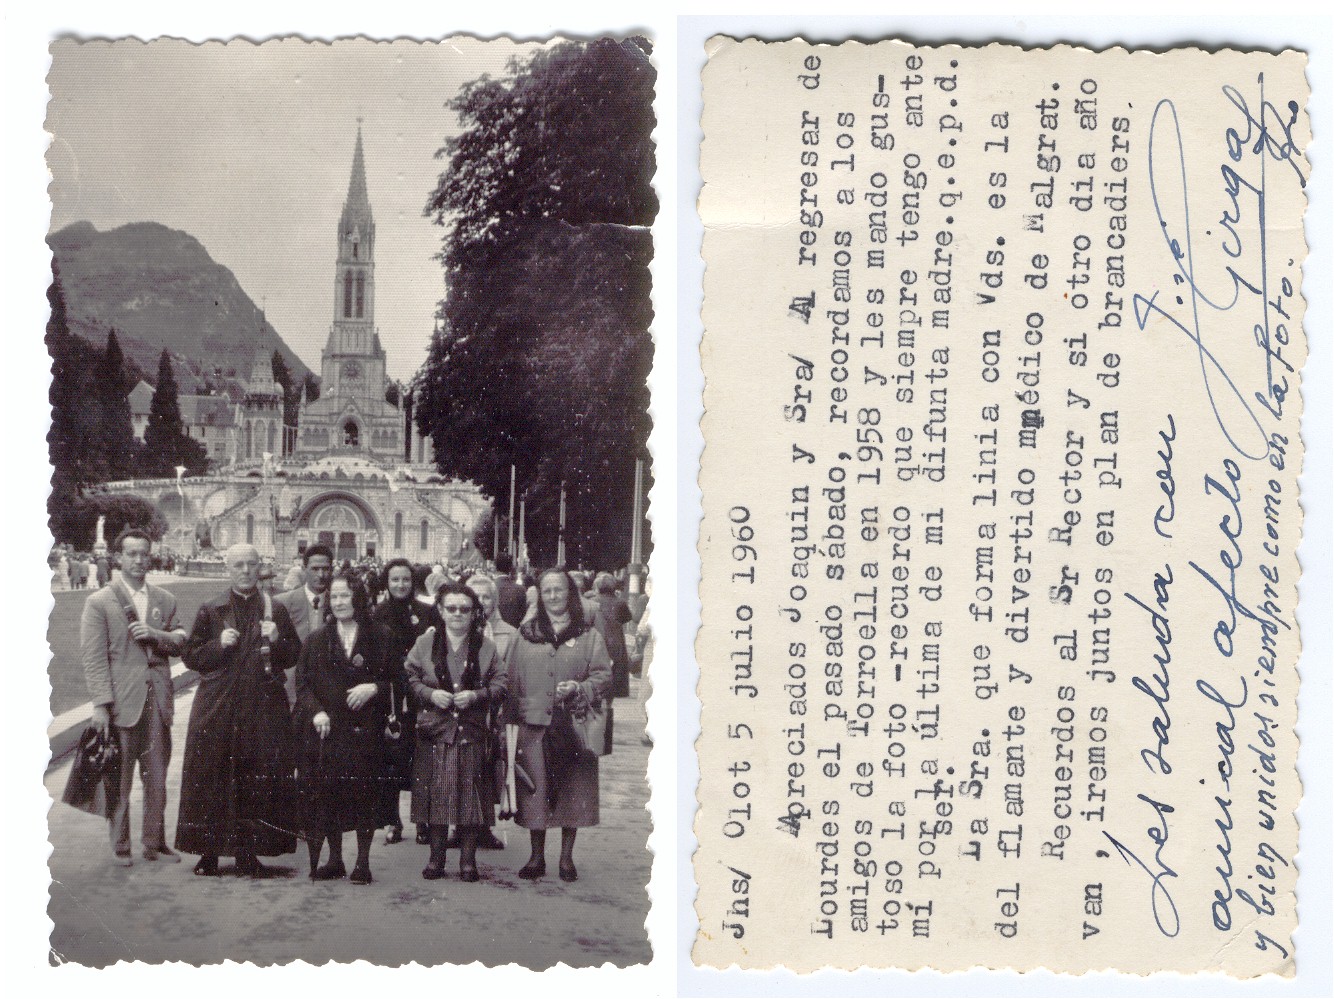 Jns/ Olot 5 julio 1960
Apreciados Joaquin y Sra/ Al regresar de
Lourdes el pasado sábado, recordamos a los
amigos de Torroella en 1958 y les mando gus-
toso la foto -recuerdo que siempre tengo ante
mí por la última de mi difunta madre.q.e.p.d.
ser.
La Sra. que forma linia con Vds. es la
del flamante y divertido médico de Malgrat.
Recuerdos al Sr Rector y si otro dia año
van , iremos juntos en plan de brancadiers.
Les saluda con
amical afecto José Girgas
y bien unidos siempre como en la foto. Pbro